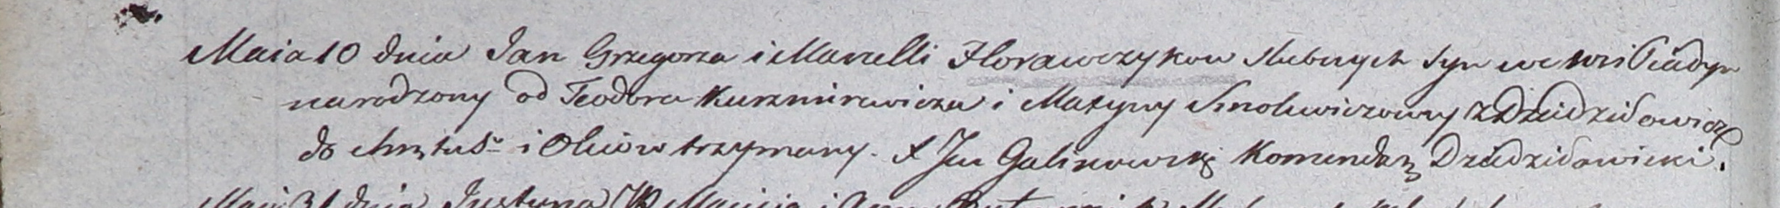 Maia 10 dnia Jan Grzegorza i Maruelli Horawczykow slubnych Syn we wsi
narodzony od Teodora Kuzmirewicza i Matyny Smolewiczowny z Dziedzidowicz
do chrztu S i Oleiow trzymany. X Jan Galinowski Komendarz Dziedzidowicki.
Maia 31 dnia Justyna